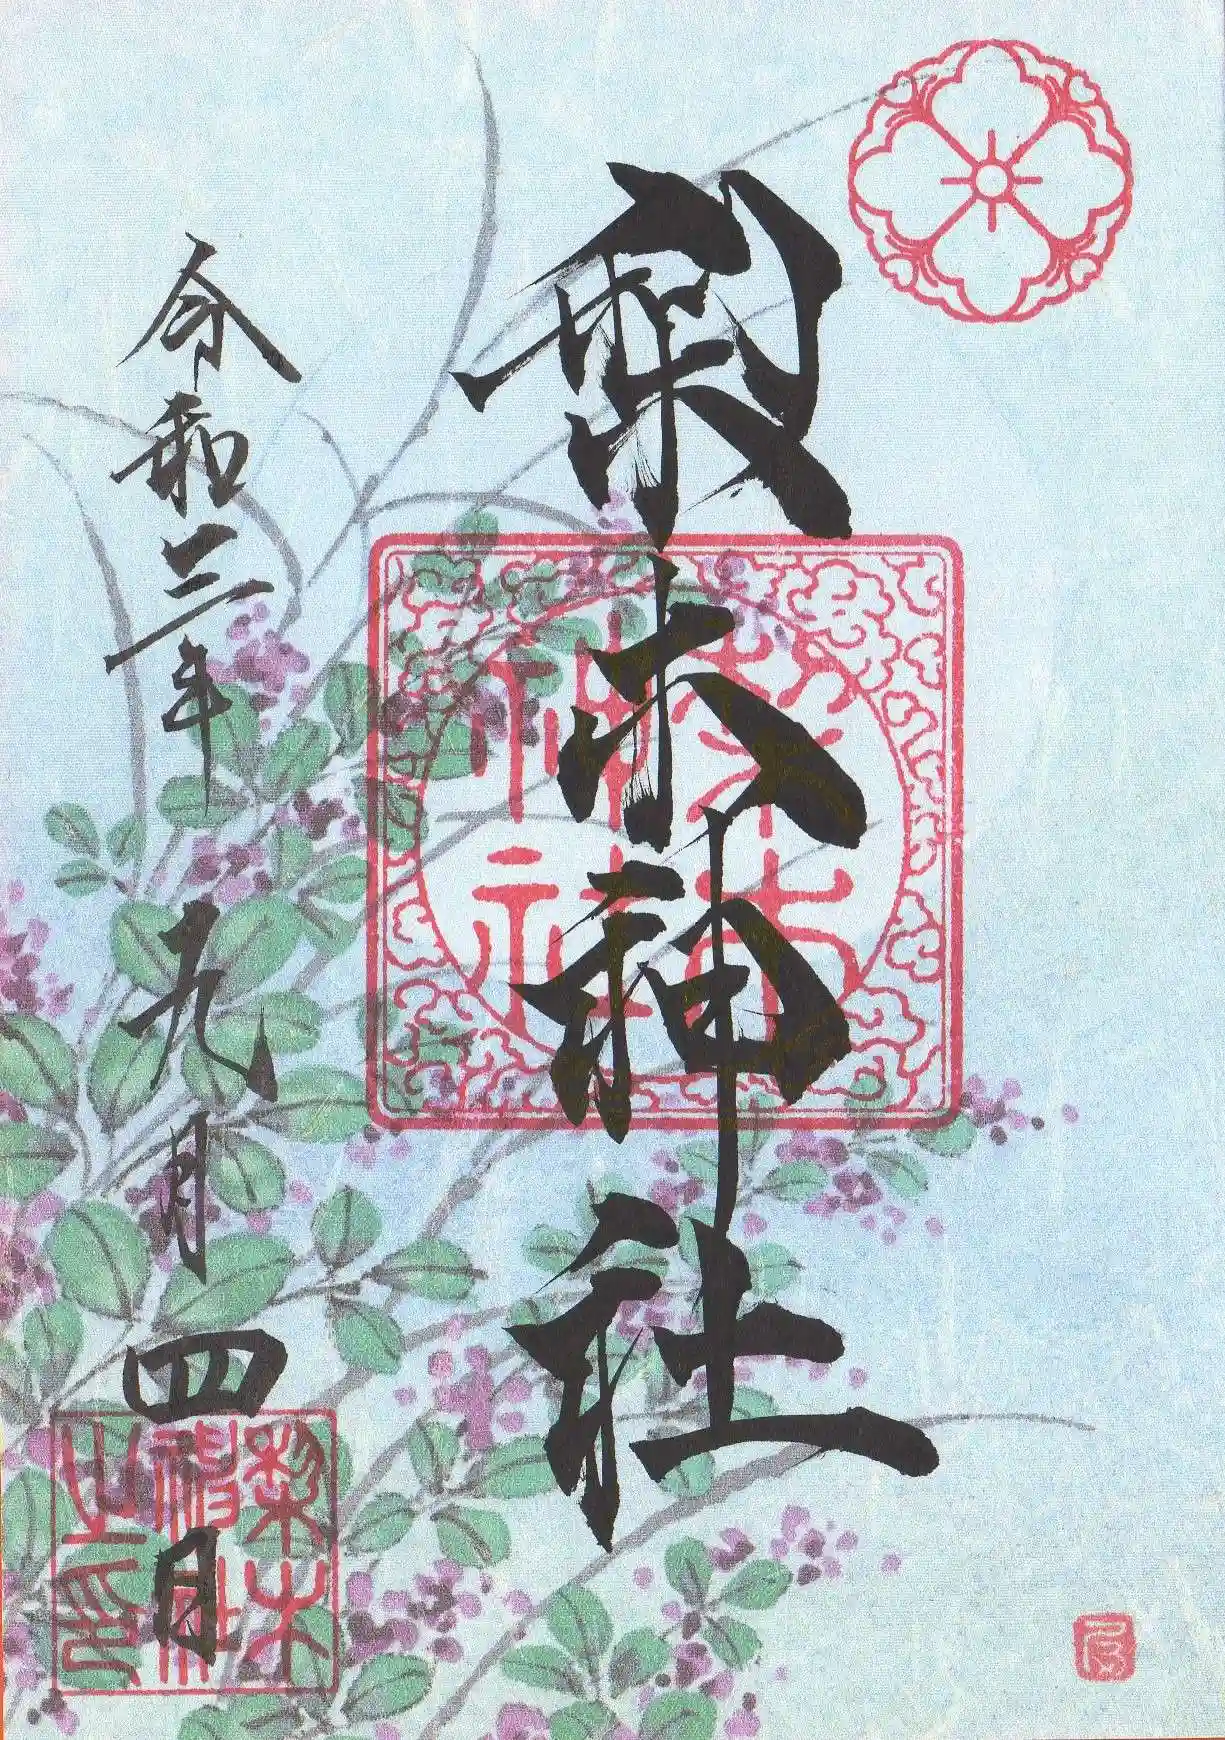 梨木神社
令和三年九月四日
梨木
神社
梨木
神社
之印